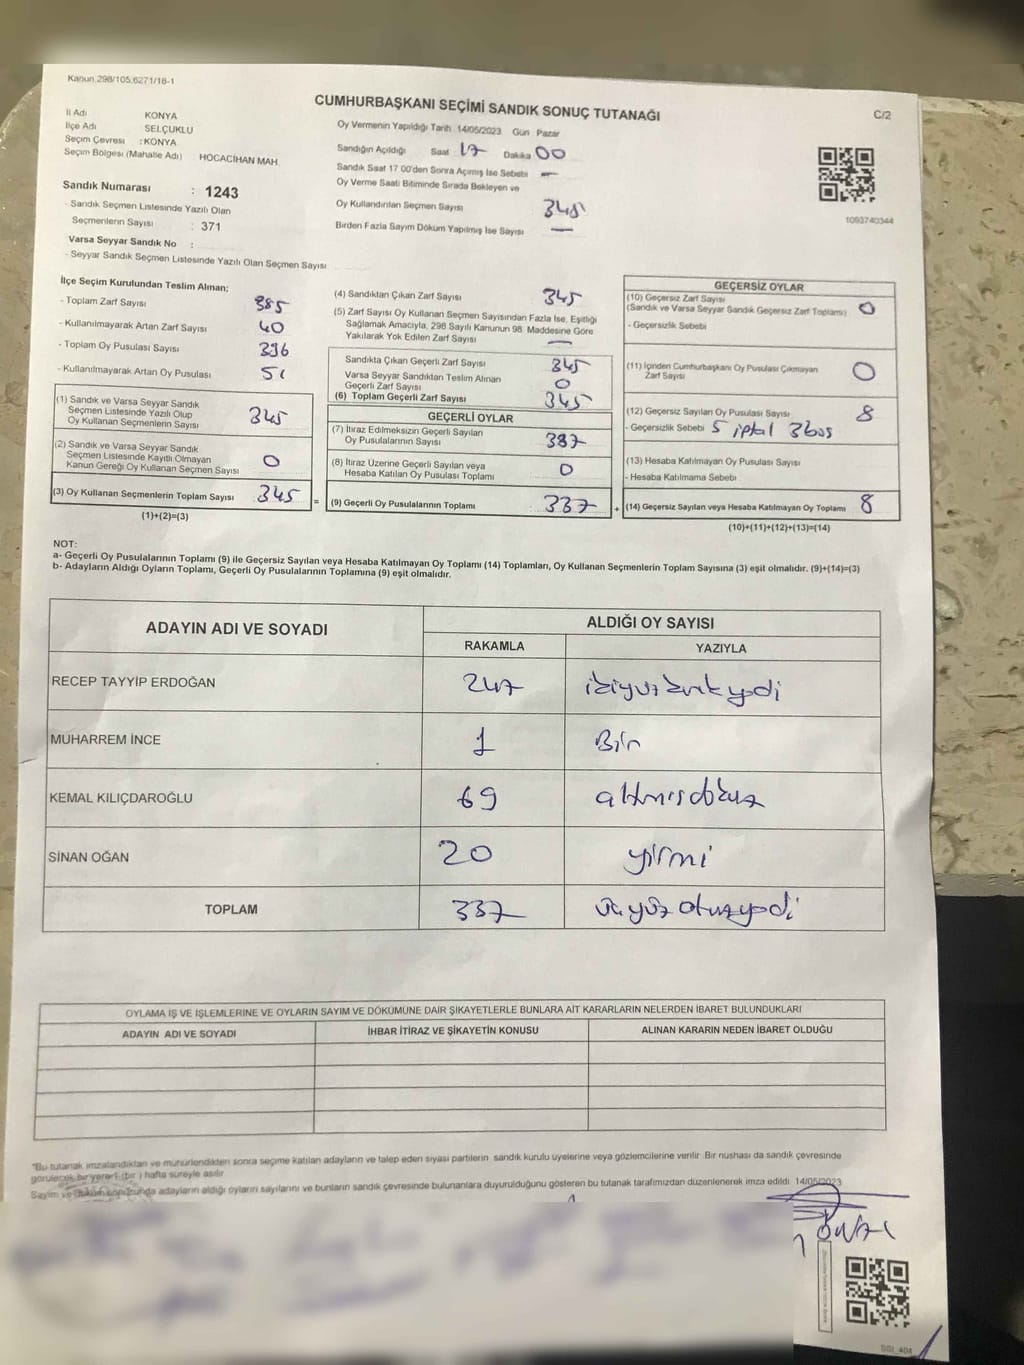 Kanun 298/105,6271/18-1
CUMHURBAŞKANI SEÇİMİ SANDIK SONUÇ TUTANAĞI
C/2
İl Adı KONYA
İlçe Adı SELÇUKLU
Seçim Çevresi : KONYA
Seçim Bölgesi (Mahalle Adı) HOCACİHAN MAH.
Sandık Numarası : 1243
- Sandık Seçmen Listesinde Yazılı Olan
Seçmenlerin Sayısı : 371
Varsa Seyyar Sandık No :
- Seyyar Sandık Seçmen Listesinde Yazılı Olan Seçmen Sayısı
Oy Vermenin Yapıldığı Tarih 14/05/2023 Gün Pazar
Sandığın Açıldığı Saat 17 Dakika 00
Sandık Saat 17.00'den Sonra Açımış İse Sebebi —
Oy Verme Saati Bitiminde Sırada Bekleyen ve
Oy Kullandırılan Seçmen Sayısı 345
Birden Fazla Sayım Döküm Yapılmış İse Sayısı —
1093740344
İlçe Seçim Kurulundan Teslim Alınan;
- Toplam Zarf Sayısı 385
- Kullanılmayarak Artan Zarf Sayısı 40
- Toplam Oy Pusulası Sayısı 396
- Kullanılmayarak Artan Oy Pusulası 51
(1) Sandık ve Varsa Seyyar Sandık
Seçmen Listesinde Yazılı Olup
Oy Kullanan Seçmenlerin Sayısı 345
(2) Sandık ve Varsa Seyyar Sandık
Seçmen Listesinde Kayıtlı Olmayan
Kanun Gereği Oy Kullanan Seçmen Sayısı 0
(3) Oy Kullanan Seçmenlerin Toplam Sayısı 345 =
(1)+(2)=(3)
(4) Sandıktan Çıkan Zarf Sayısı 345
(5) Zarf Sayısı Oy Kullanan Seçmen Sayısından Fazla İse, Eşitliği
Sağlamak Amacıyla, 298 Sayılı Kanunun 98. Maddesine Göre
Yakılarak Yok Edilen Zarf Sayısı —
Sandıkta Çıkan Geçerli Zarf Sayısı 345
Varsa Seyyar Sandıktan Teslim Alınan
Geçerli Zarf Sayısı 0
(6) Toplam Geçerli Zarf Sayısı 345
GEÇERLİ OYLAR
(7) İtiraz Edilmeksizin Geçerli Sayılan
Oy Pusulalarının Sayısı 337
(8) İtiraz Üzerine Geçerli Sayılan veya
Hesaba Katılan Oy Pusulası Toplamı 0
(9) Geçerli Oy Pusulalarının Toplamı 337 +
GEÇERSİZ OYLAR
(10) Geçersiz Zarf Sayısı
(Sandık ve Varsa Seyyar Sandık Geçersiz Zarf Toplamı) 0
- Geçersizlik Sebebi
(11) İçinden Cumhurbaşkanı Oy Pusulası Çıkmayan
Zarf Sayısı 0
(12) Geçersiz Sayılan Oy Pusulası Sayısı 8
- Geçersizlik Sebebi 5 iptal 3 boş
(13) Hesaba Katılmayan Oy Pusulası Sayısı
- Hesaba Katılmama Sebebi
(14) Geçersiz Sayılan veya Hesaba Katılmayan Oy Toplamı 8
(10)+(11)+(12)+(13)=(14)
NOT:
a- Geçerli Oy Pusulalarının Toplamı (9) ile Geçersiz Sayılan veya Hesaba Katılmayan Oy Toplamı (14) Toplamları, Oy Kullanan Seçmenlerin Toplam Sayısına (3) eşit olmalıdır. (9)+(14)=(3)
b- Adayların Aldığı Oyların Toplamı, Geçerli Oy Pusulalarının Toplamına (9) eşit olmalıdır.
ADAYIN ADI VE SOYADI
ALDIĞI OY SAYISI
RAKAMLA YAZIYLA
RECEP TAYYİP ERDOĞAN 247 ikiyüzkırkyedi
MUHARREM İNCE 1 Bir
KEMAL KILIÇDAROĞLU 69 altmışdokuz
SİNAN OĞAN 20 yirmi
TOPLAM 337 üçyüzotuzyedi
OYLAMA İŞ VE İŞLEMLERİNE VE OYLARIN SAYIM VE DÖKÜMÜNE DAİR ŞİKAYETLERLE BUNLARA AİT KARARLARIN NELERDEN İBARET BULUNDUKLARI
ADAYIN ADI VE SOYADI İHBAR İTİRAZ VE ŞİKAYETİN KONUSU ALINAN KARARIN NEDEN İBARET OLDUĞU
"Bu tutanak imzalandıktan ve mühürlendikten sonra seçime katılan adayların ve talep eden siyasi partilerin sandık kurulu üyelerine veya gözlemcilerine verilir. Bir nüshası da sandık çevresinde
görülecek bir yere 1 (bir) hafta süreyle asılır.
Sayım ve döküm sonucunda adayların aldığı oyların sayılarını ve bunların sandık çevresinde bulunanlara duyurulduğunu gösteren bu tutanak tarafımızdan düzenlenerek imza edildi. 14/05/2023